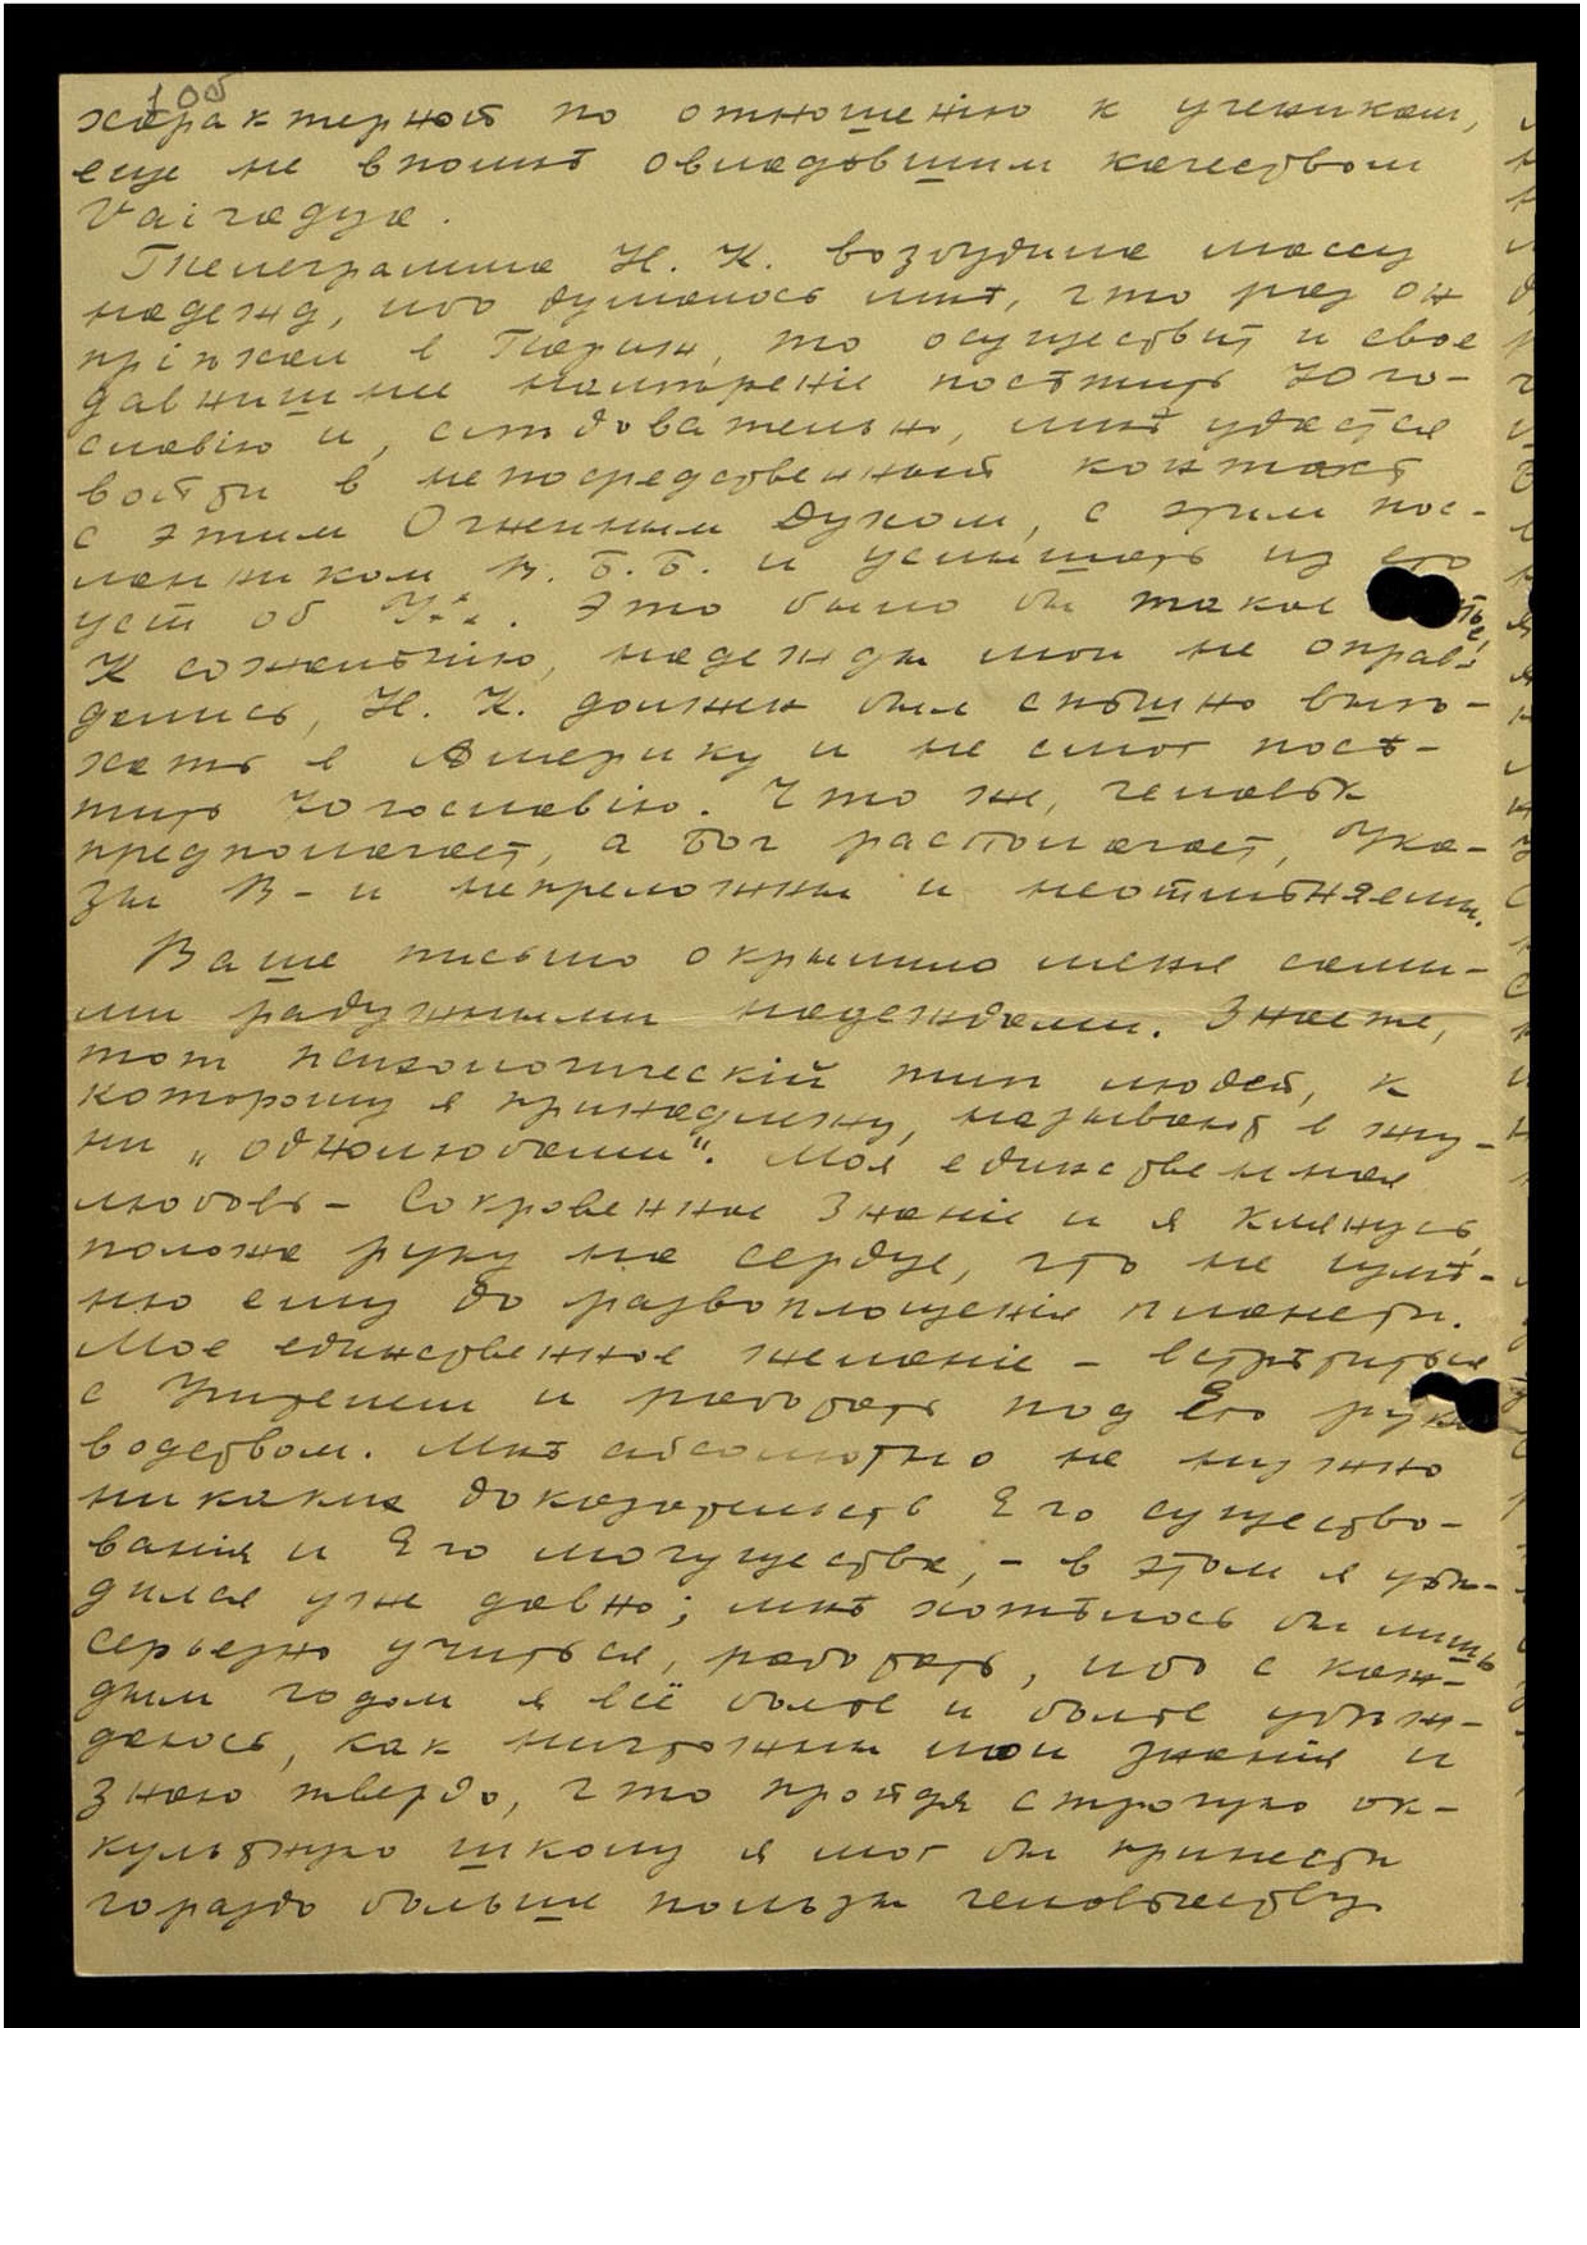 1об
характерной по отношенію к ученикам,
еще не вполнѣ овладѣвшим качеством
Vairagya.
Телеграмма Н. К. возбудила массу
надежд, ибо думалось мнѣ, что раз он
пріѣхал в Париж, то осуществит и свое
давнишнее намѣреніе посѣтить Юго-
славію и, слѣдовательно, мнѣ удастся
войти в непосредственный контакт
с этим Огненным Духом, с этим пос-
ланником В. Б. Б. и услышать из его
уст об У. Это было бы такое
К сожалѣнію, надежды мои не оправ-
дались, Н. К. должен был спѣшно выѣ-
хать в Америку и не смог посѣ-
тить Югославію. Что же, человѣк
предполагает, а Бог располагает, Ука-
зы В-и непреложны и неотмѣняемы.
Ваше письмо окрылило меня самы-
ми радужными надеждами. Знаете,
тот психологическій тип людей, к
которому я принадлежу, называют в жиз-
ни „однолюбами“. Моя единственная
любовь – Сокровенное Знаніе и я клянусь,
положа руку на сердце, что не измѣ-
ню ему до развоплощенія планеты.
Мое единственное желаніе – встрѣтиться
с Учителем и работать под Его руко
водством. Мнѣ абсолютно не нужно
никаких доказательств Его существо-
ванія и Его могущества, – в этом я убѣ-
дился уже давно; мнѣ хотѣлось бы лишь
серьезно учиться, работать, ибо с каж-
дым годом я всё болѣе и болѣе убѣж-
даюсь, как ничтожны мои знанія и
знаю твердо, что пройдя строгую ок-
культную школу я мог бы принести
гораздо больше пользы человѣчеству